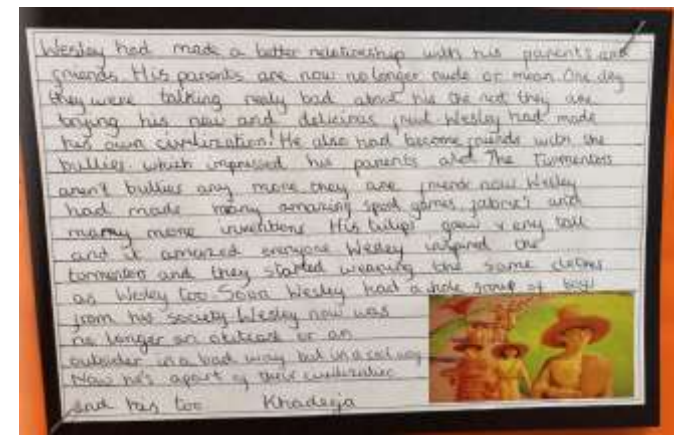 Wesley had made a better relationship with his parents and
friends. His parents are now no longer rude or mean One day
they were talking realy bad about his the not they are
trying his new and delicious fruit Wesley had made
his own civilization! He also had become friends with the
bullies which impressed his parents and The Tormentors
aren't bullies any more they are friends now Wesley
had made many amazing sport games fabric's and
many more inventions His tulips grew very tall
and it amazed everyone Wesley inspired the
tormentors and they started wearing the same clothes
as Wesley too. Soon Wesley had a whole group of boys
from his society Wesley now was
no longer an outcast or an
outsider in a bad way but in a cool way
Now he's apart of their civilization
and his too Khadeeja